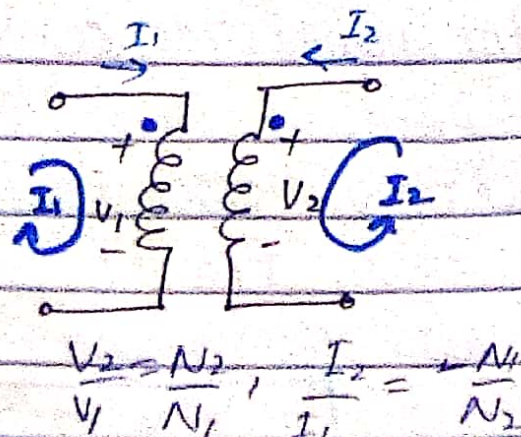 I₁ I₂
+ +
I₁ V₁ V₂ I₂
- -
V₂/V₁ = N₂/N₁ , I₂/I₁ = - N₁/N₂